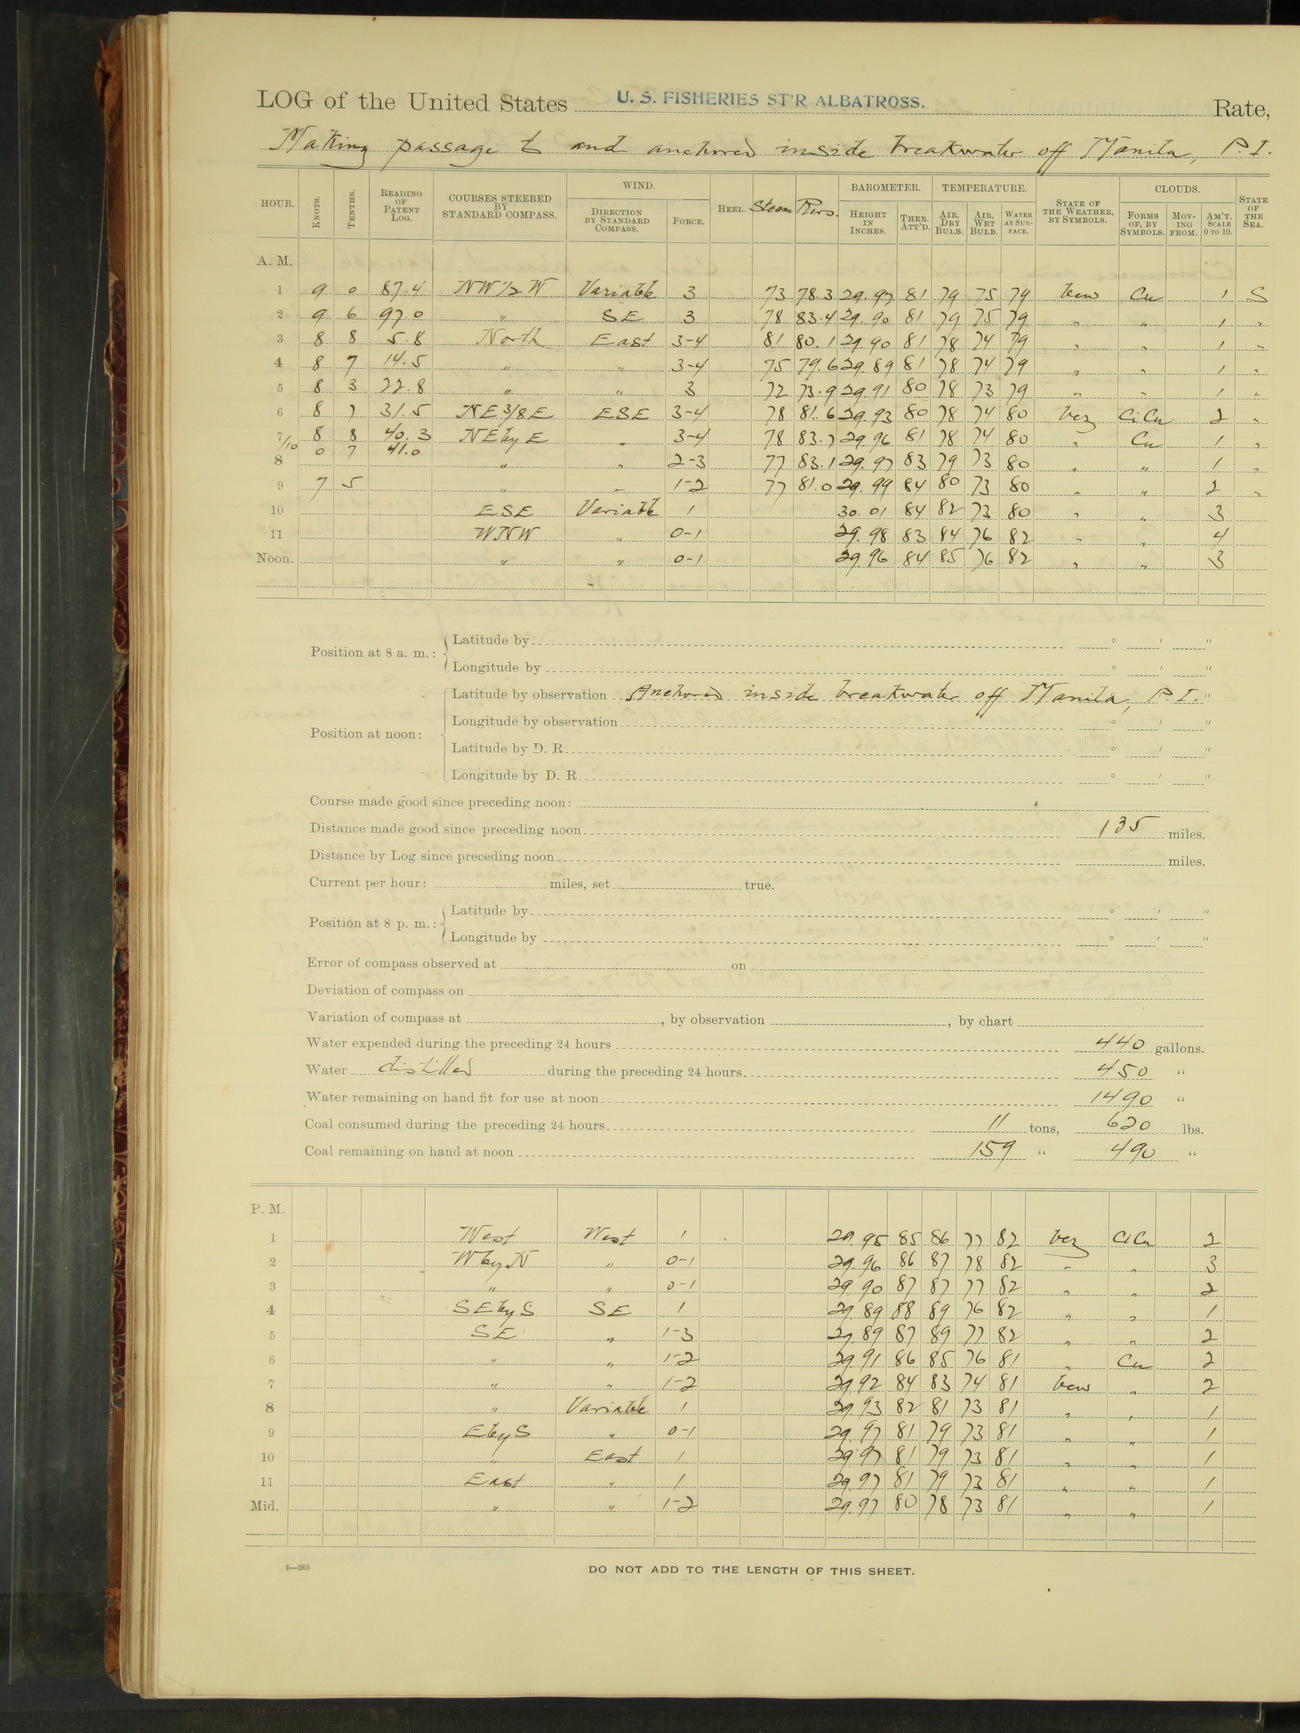 LOG of the United States U. S. FISHERIES ST'R ALBATROSS. Rate,
Making passage to and anchored inside breakwater off Manila, P.I.
HOUR. KNOTS. TENTHS. READING OF PATENT LOG. COURSES STEERED BY STANDARD COMPASS. WIND. DIRECTION BY STANDARD COMPASS. FORCE. HEEL. Steam Revs. BAROMETER. HEIGHT IN INCHES. THER. ATT'D. TEMPERATURE. AIR, DRY BULB. AIR, WET BULB. WATER AT SURFACE. STATE OF THE WEATHER, BY SYMBOLS. CLOUDS. FORMS OF, BY SYMBOLS. MOVING FROM. AM'T. SCALE 0 TO 10. STATE OF THE SEA.
A. M.
1 9 0 87.4 NW½W Variable 3 73 78.3 29.97 81 79 75 79 bcw Cu 1 S
2 9 6 97.0 " SE 3 78 83.4 29.90 81 79 75 79 " " 1 "
3 8 8 5.8 North East 3-4 81 80.1 29.90 81 78 74 79 " " 1 "
4 8 7 14.5 " " 3-4 75 79.6 29.89 81 78 74 79 " " 1 "
5 8 3 22.8 " " 3 72 73.9 29.91 80 78 73 79 " " 1 "
6 8 7 31.5 NE⅜E ESE 3-4 78 81.6 29.93 80 78 74 80 bcz CiCu 2 "
7 8 8 40.3 NEbyE " 3-4 78 83.7 29.96 81 78 74 80 " Cu 1 "
7/10 0 7 41.0
8 " " 2-3 77 83.1 29.97 83 79 73 80 " " 1 "
9 7 5 " " 1-2 77 81.0 29.99 84 80 73 80 " " 2 "
10 ESE Variable 1 30.01 84 82 73 80 " " 3
11 WNW " 0-1 29.98 83 84 76 82 " " 4
Noon. " " 0-1 29.96 84 85 76 82 " " 3
Position at 8 a. m.: Latitude by ° ' "
Longitude by ° ' "
Position at noon: Latitude by observation Anchored inside breakwater off Manila, P.I. "
Longitude by observation ° ' "
Latitude by D. R. ° ' "
Longitude by D. R. ° ' "
Course made good since preceding noon:
Distance made good since preceding noon 135 miles.
Distance by Log since preceding noon miles.
Current per hour: miles, set true.
Position at 8 p. m.: Latitude by ° ' "
Longitude by ° ' "
Error of compass observed at on
Deviation of compass on
Variation of compass at , by observation , by chart
Water expended during the preceding 24 hours 440 gallons.
Water distilled during the preceding 24 hours 450 "
Water remaining on hand fit for use at noon 1490 "
Coal consumed during the preceding 24 hours 11 tons, 620 lbs.
Coal remaining on hand at noon 159 " 490 "
P. M.
1 West West 1 29.95 85 86 77 82 bcz CiCu 2
2 WbyN " 0-1 29.96 86 87 78 82 " " 3
3 " " 0-1 29.90 87 87 77 82 " " 2
4 SEbyS SE 1 29.89 88 89 76 82 " " 1
5 SE " 1-3 29.89 87 89 77 82 " " 2
6 " " 1-2 29.91 86 85 76 81 " Cu 2
7 " " 1-2 29.92 84 83 74 81 bcw " 2
8 " Variable 1 29.93 82 81 73 81 " " 1
9 EbyS " 0-1 29.97 81 79 73 81 " " 1
10 " East 1 29.97 81 79 73 81 " " 1
11 East " 1 29.97 81 79 73 81 " " 1
Mid. " " 1-2 29.97 80 78 73 81 " " 1
4—265
DO NOT ADD TO THE LENGTH OF THIS SHEET.